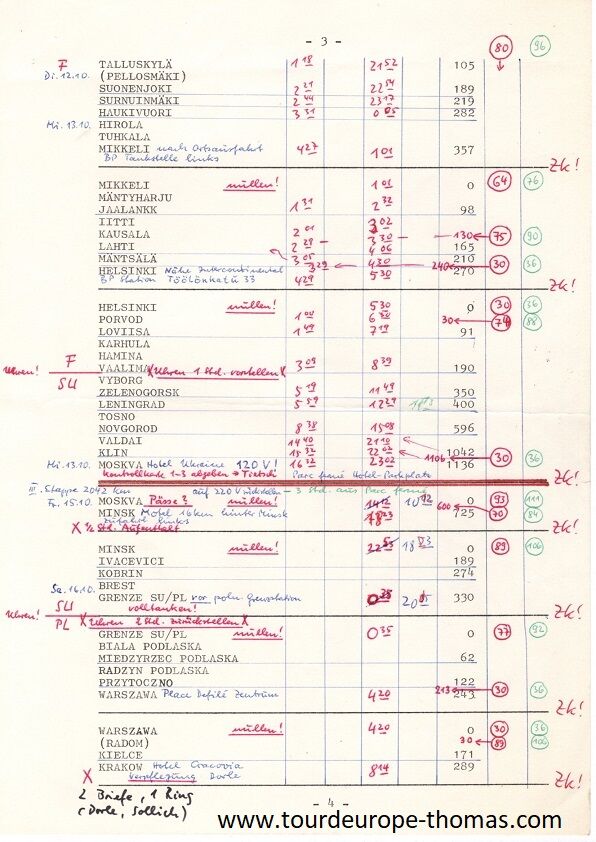 - 3 - 80 96
F TALLUSKYLÄ 1 18 21 52 105
Di. 12.10. (PELLOSMÄKI)
SUONENJOKI 2 21 22 54 189
SURNUINMÄKI 2 44 23 17 219
HAUKIVUORI 3 31 0 05 282
Mi. 13.10. HIROLA
TUHKALA
MIKKELI nach Ortsausfahrt 4 27 1 01 357
BP Tankstelle links
ZK!
MIKKELI nullen! 1 01 0 64 76
MÄNTYHARJU
JAALANKK 1 31 2 32 98
IITTI 3 02
KAUSALA 2 01 130 75 90
LAHTI 2 28 3 30 165
MÄNTSÄLÄ 3 05 4 06 210
HELSINKI Nähe Intercontinental 3 29 4 30 240 270 30 36
BP Station Töölönkatu 33 4 29 5 30
ZK!
HELSINKI nullen! 5 30 0 30 36
PORVOO 1 04 30 74 88
LOVIISA 1 49 7 19 91
KARHULA
HAMINA
Uhren! F VAALIMA X Uhren 1 Std. vorstellen X 3 09 8 39 190
SU VYBORG
ZELENOGORSK 5 19 11 49 350
LENINGRAD 5 59 12 29 400
TOSNO
NOVGOROD 8 38 15 08 596
VALDAI 14 40 21 10
KLIN 15 32 22 02 1106 1042 30 36
Mi. 13.10. MOSKVA Hotel Ukraine 120 V! 16 32 23 02 1136
Kontrollkarte 1-3 abgeben Parc fermé Hotel-Parkplatz
III. Etappe 2042 km auf 220 V rückstellen - 3 Std. aus Parc fermé
Fr. 15.10. MOSKVA Pässe? 10 12 0 93 111
MINSK Motel 16km hinter Minsk 18 23 600 725 70 84
Zufahrt links
X ½ Std. Aufenthalt
ZK!
MINSK nullen! 22 53 18 53 0 89 106
IVACEVICI 189
KOBRIN 274
BREST
Sa. 16.10. GRENZE SU/PL vor poln. Grenzstation 0 35 330
Uhren! SU volltanken!
PL X Uhren 2 Std. zurückstellen X
ZK!
GRENZE SU/PL nullen! 0 35 0 77 92
BIALA PODLASKA
MIEDZYRZEC PODLASKA 62
RADZYN PODLASKA
PRZYTOCZNO 122
WARSZAWA Place Defilé Zentrum 4 20 213 243 30 36
ZK!
WARSZAWA nullen! 4 20 0 30 36
(RADOM) 30 89 106
KIELCE 171
KRAKOW Hotel Cracovia 8 14 289
X Verpflegung Dorle
ZK!
2 Briefe, 1 Ring
(Dorle, Sollich)
- 4 -
www.tourdeurope-thomas.com